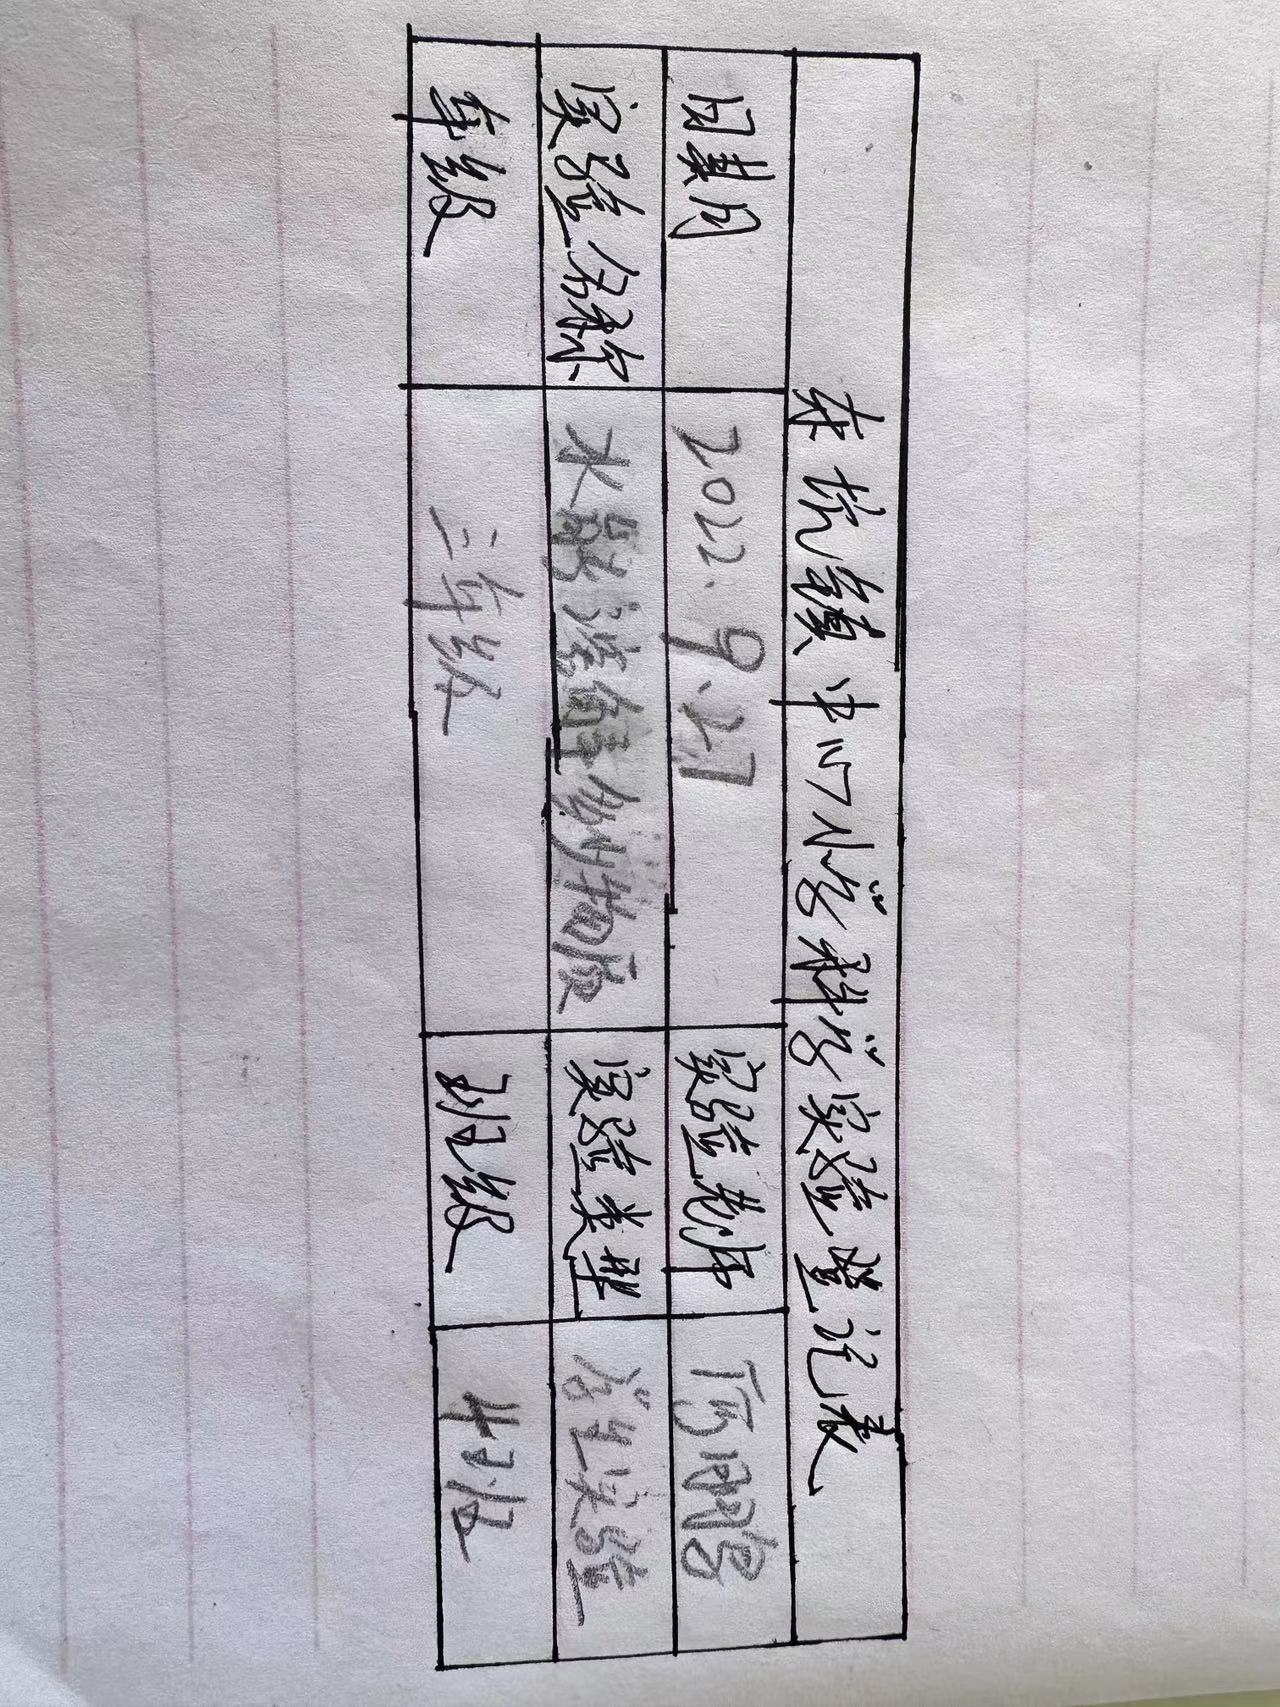 东坑镇中心小学科学实验登记表
日期 2022.9.27 实验老师
实验名称 水能溶解多少物质 实验类型 学生实验
年级 三年级 班级 4班